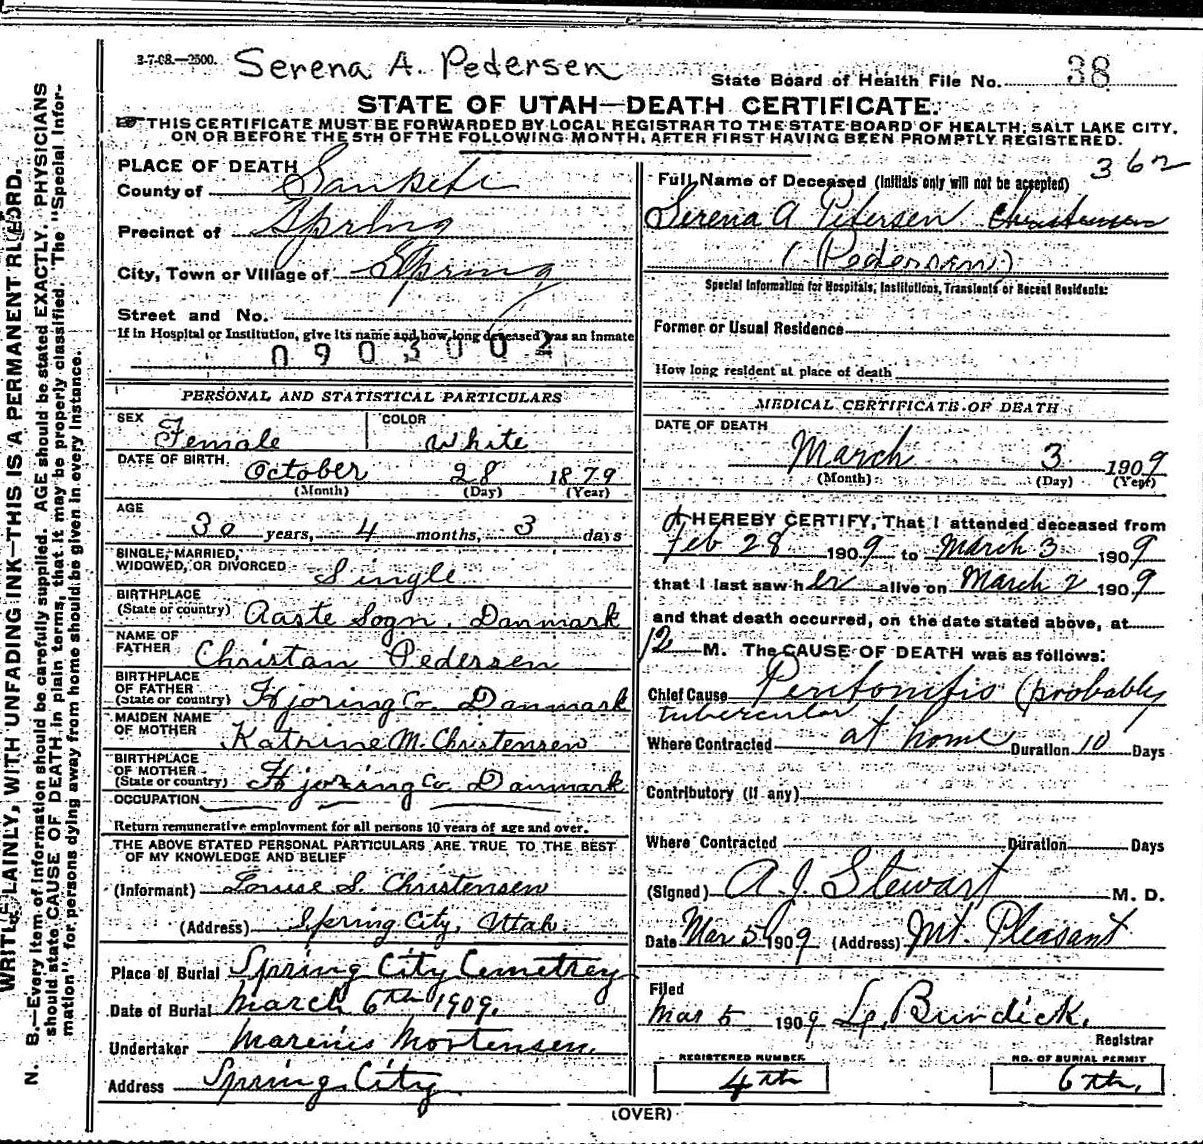 3-7-08.—2500. Serena A. Pedersen
State Board of Health File No. 38
STATE OF UTAH—DEATH CERTIFICATE.
THIS CERTIFICATE MUST BE FORWARDED BY LOCAL REGISTRAR TO THE STATE BOARD OF HEALTH, SALT LAKE CITY,
ON OR BEFORE THE 5TH OF THE FOLLOWING MONTH, AFTER FIRST HAVING BEEN PROMPTLY REGISTERED.
PLACE OF DEATH
County of Sanpete
Precinct of Spring
City, Town or Village of Spring
Street and No.
If in Hospital or Institution, give its name and how long deceased was an inmate
0903002
PERSONAL AND STATISTICAL PARTICULARS
SEX Female COLOR White
DATE OF BIRTH October 28 1879
(Month) (Day) (Year)
AGE
30 years, 4 months, 3 days
SINGLE, MARRIED,
WIDOWED, OR DIVORCED Single
BIRTHPLACE
(State or country) Aaste Sogn, Danmark
NAME OF
FATHER Christan Pedersen
BIRTHPLACE
OF FATHER
(State or country) Hjoring Co. Danmark
MAIDEN NAME
OF MOTHER Katrine M. Christensen
BIRTHPLACE
OF MOTHER
(State or country) Hjoring Co. Danmark
OCCUPATION
Return remunerative employment for all persons 10 years of age and over.
THE ABOVE STATED PERSONAL PARTICULARS ARE TRUE TO THE BEST
OF MY KNOWLEDGE AND BELIEF
(Informant) Louise S. Christensen
(Address) Spring City, Utah
Place of Burial Spring City Cemetrey
Date of Burial March 6th 1909.
Undertaker Marinis Mortensen.
Address Spring City
362
Full Name of Deceased (Initials only will not be accepted)
Serena A Petersen Christensen
(Pedersen)
Special Information for Hospitals, Institutions, Transients or Recent Residents:
Former or Usual Residence
How long resident at place of death
MEDICAL CERTIFICATE OF DEATH
DATE OF DEATH
March 3 1909
(Month) (Day) (Year)
I HEREBY CERTIFY, That I attended deceased from
Feb 28 1909 to March 3 1909
that I last saw her alive on March 2 1909
and that death occurred, on the date stated above, at
12 M. The CAUSE OF DEATH was as follows:
Chief Cause Peritonitis (probably
tubercular
Where Contracted at home Duration 10 Days
Contributory (if any)
Where Contracted Duration Days
(Signed) A. J. Stewart M. D.
Date Mar 5 1909 (Address) Mt. Pleasant
Filed
Mar 5 1909 Burdick.
Registrar
REGISTERED NUMBER
4th
NO. OF BURIAL PERMIT
6th.
(OVER)
WRITE PLAINLY, WITH UNFADING INK—THIS IS A PERMANENT RECORD.
N. B.—Every item of information should be carefully supplied. AGE should be stated EXACTLY. PHYSICIANS
should state CAUSE OF DEATH in plain terms, that it may be properly classified. The "Special Infor-
mation" for persons dying away from home should be given in every instance.